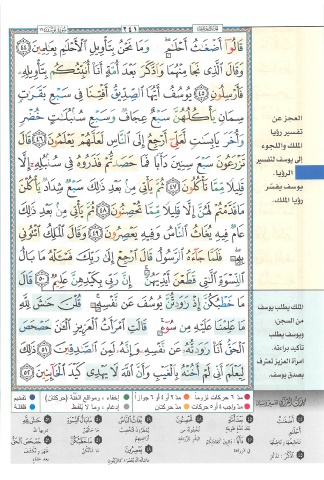 ٢٤١
قَالُوٓا۟ أَضْغَٰثُ أَحْلَٰمٍ ۖ وَمَا نَحْنُ بِتَأْوِيلِ ٱلْأَحْلَٰمِ بِعَٰلِمِينَ ٤٤
وَقَالَ ٱلَّذِى نَجَا مِنْهُمَا وَٱدَّكَرَ بَعْدَ أُمَّةٍ أَنَا۠ أُنَبِّئُكُم بِتَأْوِيلِهِۦ
فَأَرْسِلُونِ ٤٥ يُوسُفُ أَيُّهَا ٱلصِّدِّيقُ أَفْتِنَا فِى سَبْعِ بَقَرَٰتٍ
سِمَانٍ يَأْكُلُهُنَّ سَبْعٌ عِجَافٌ وَسَبْعِ سُنۢبُلَٰتٍ خُضْرٍ
وَأُخَرَ يَابِسَٰتٍ لَّعَلِّىٓ أَرْجِعُ إِلَى ٱلنَّاسِ لَعَلَّهُمْ يَعْلَمُونَ ٤٦ قَالَ
تَزْرَعُونَ سَبْعَ سِنِينَ دَأَبًا فَمَا حَصَدتُّمْ فَذَرُوهُ فِى سُنۢبُلِهِۦٓ إِلَّا
قَلِيلًا مِّمَّا تَأْكُلُونَ ٤٧ ثُمَّ يَأْتِى مِنۢ بَعْدِ ذَٰلِكَ سَبْعٌ شِدَادٌ يَأْكُلْنَ
مَا قَدَّمْتُمْ لَهُنَّ إِلَّا قَلِيلًا مِّمَّا تُحْصِنُونَ ٤٨ ثُمَّ يَأْتِى مِنۢ بَعْدِ ذَٰلِكَ
عَامٌ فِيهِ يُغَاثُ ٱلنَّاسُ وَفِيهِ يَعْصِرُونَ ٤٩ وَقَالَ ٱلْمَلِكُ ٱئْتُونِى
بِهِۦ ۖ فَلَمَّا جَآءَهُ ٱلرَّسُولُ قَالَ ٱرْجِعْ إِلَىٰ رَبِّكَ فَسْـَٔلْهُ مَا بَالُ
ٱلنِّسْوَةِ ٱلَّٰتِى قَطَّعْنَ أَيْدِيَهُنَّ ۚ إِنَّ رَبِّى بِكَيْدِهِنَّ عَلِيمٌ ٥٠ قَالَ
مَا خَطْبُكُنَّ إِذْ رَٰوَدتُّنَّ يُوسُفَ عَن نَّفْسِهِۦ ۚ قُلْنَ حَٰشَ لِلَّهِ
مَا عَلِمْنَا عَلَيْهِ مِن سُوٓءٍ ۚ قَالَتِ ٱمْرَأَتُ ٱلْعَزِيزِ ٱلْـَٰٔنَ حَصْحَصَ
ٱلْحَقُّ أَنَا۠ رَٰوَدتُّهُۥ عَن نَّفْسِهِۦ وَإِنَّهُۥ لَمِنَ ٱلصَّٰدِقِينَ ٥١ ذَٰلِكَ
لِيَعْلَمَ أَنِّى لَمْ أَخُنْهُ بِٱلْغَيْبِ وَأَنَّ ٱللَّهَ لَا يَهْدِى كَيْدَ ٱلْخَآئِنِينَ ٥٢
العجز عن
تفسير رؤيا
الملك واللجوء
إلى يوسف لتفسير
الرؤيا.
يوسف يفسّر
رؤيا الملك.
الملك يطلب يوسف
من السجن،
ويوسف يطلب
تأكيد براءته.
امرأة العزيز تعترف
بصدق يوسف.
مدّ ٦ حركات لزوماً
مدّ ٢ أو ٤ أو ٦ جوازاً
إخفاء، ومواقع الغُنَّة (حركتان)
تفخيم
مدّ واجب ٤ أو ٥ حركات
مدّ حركتان
إدغام، وما لا يُلفَظ
قلقلة